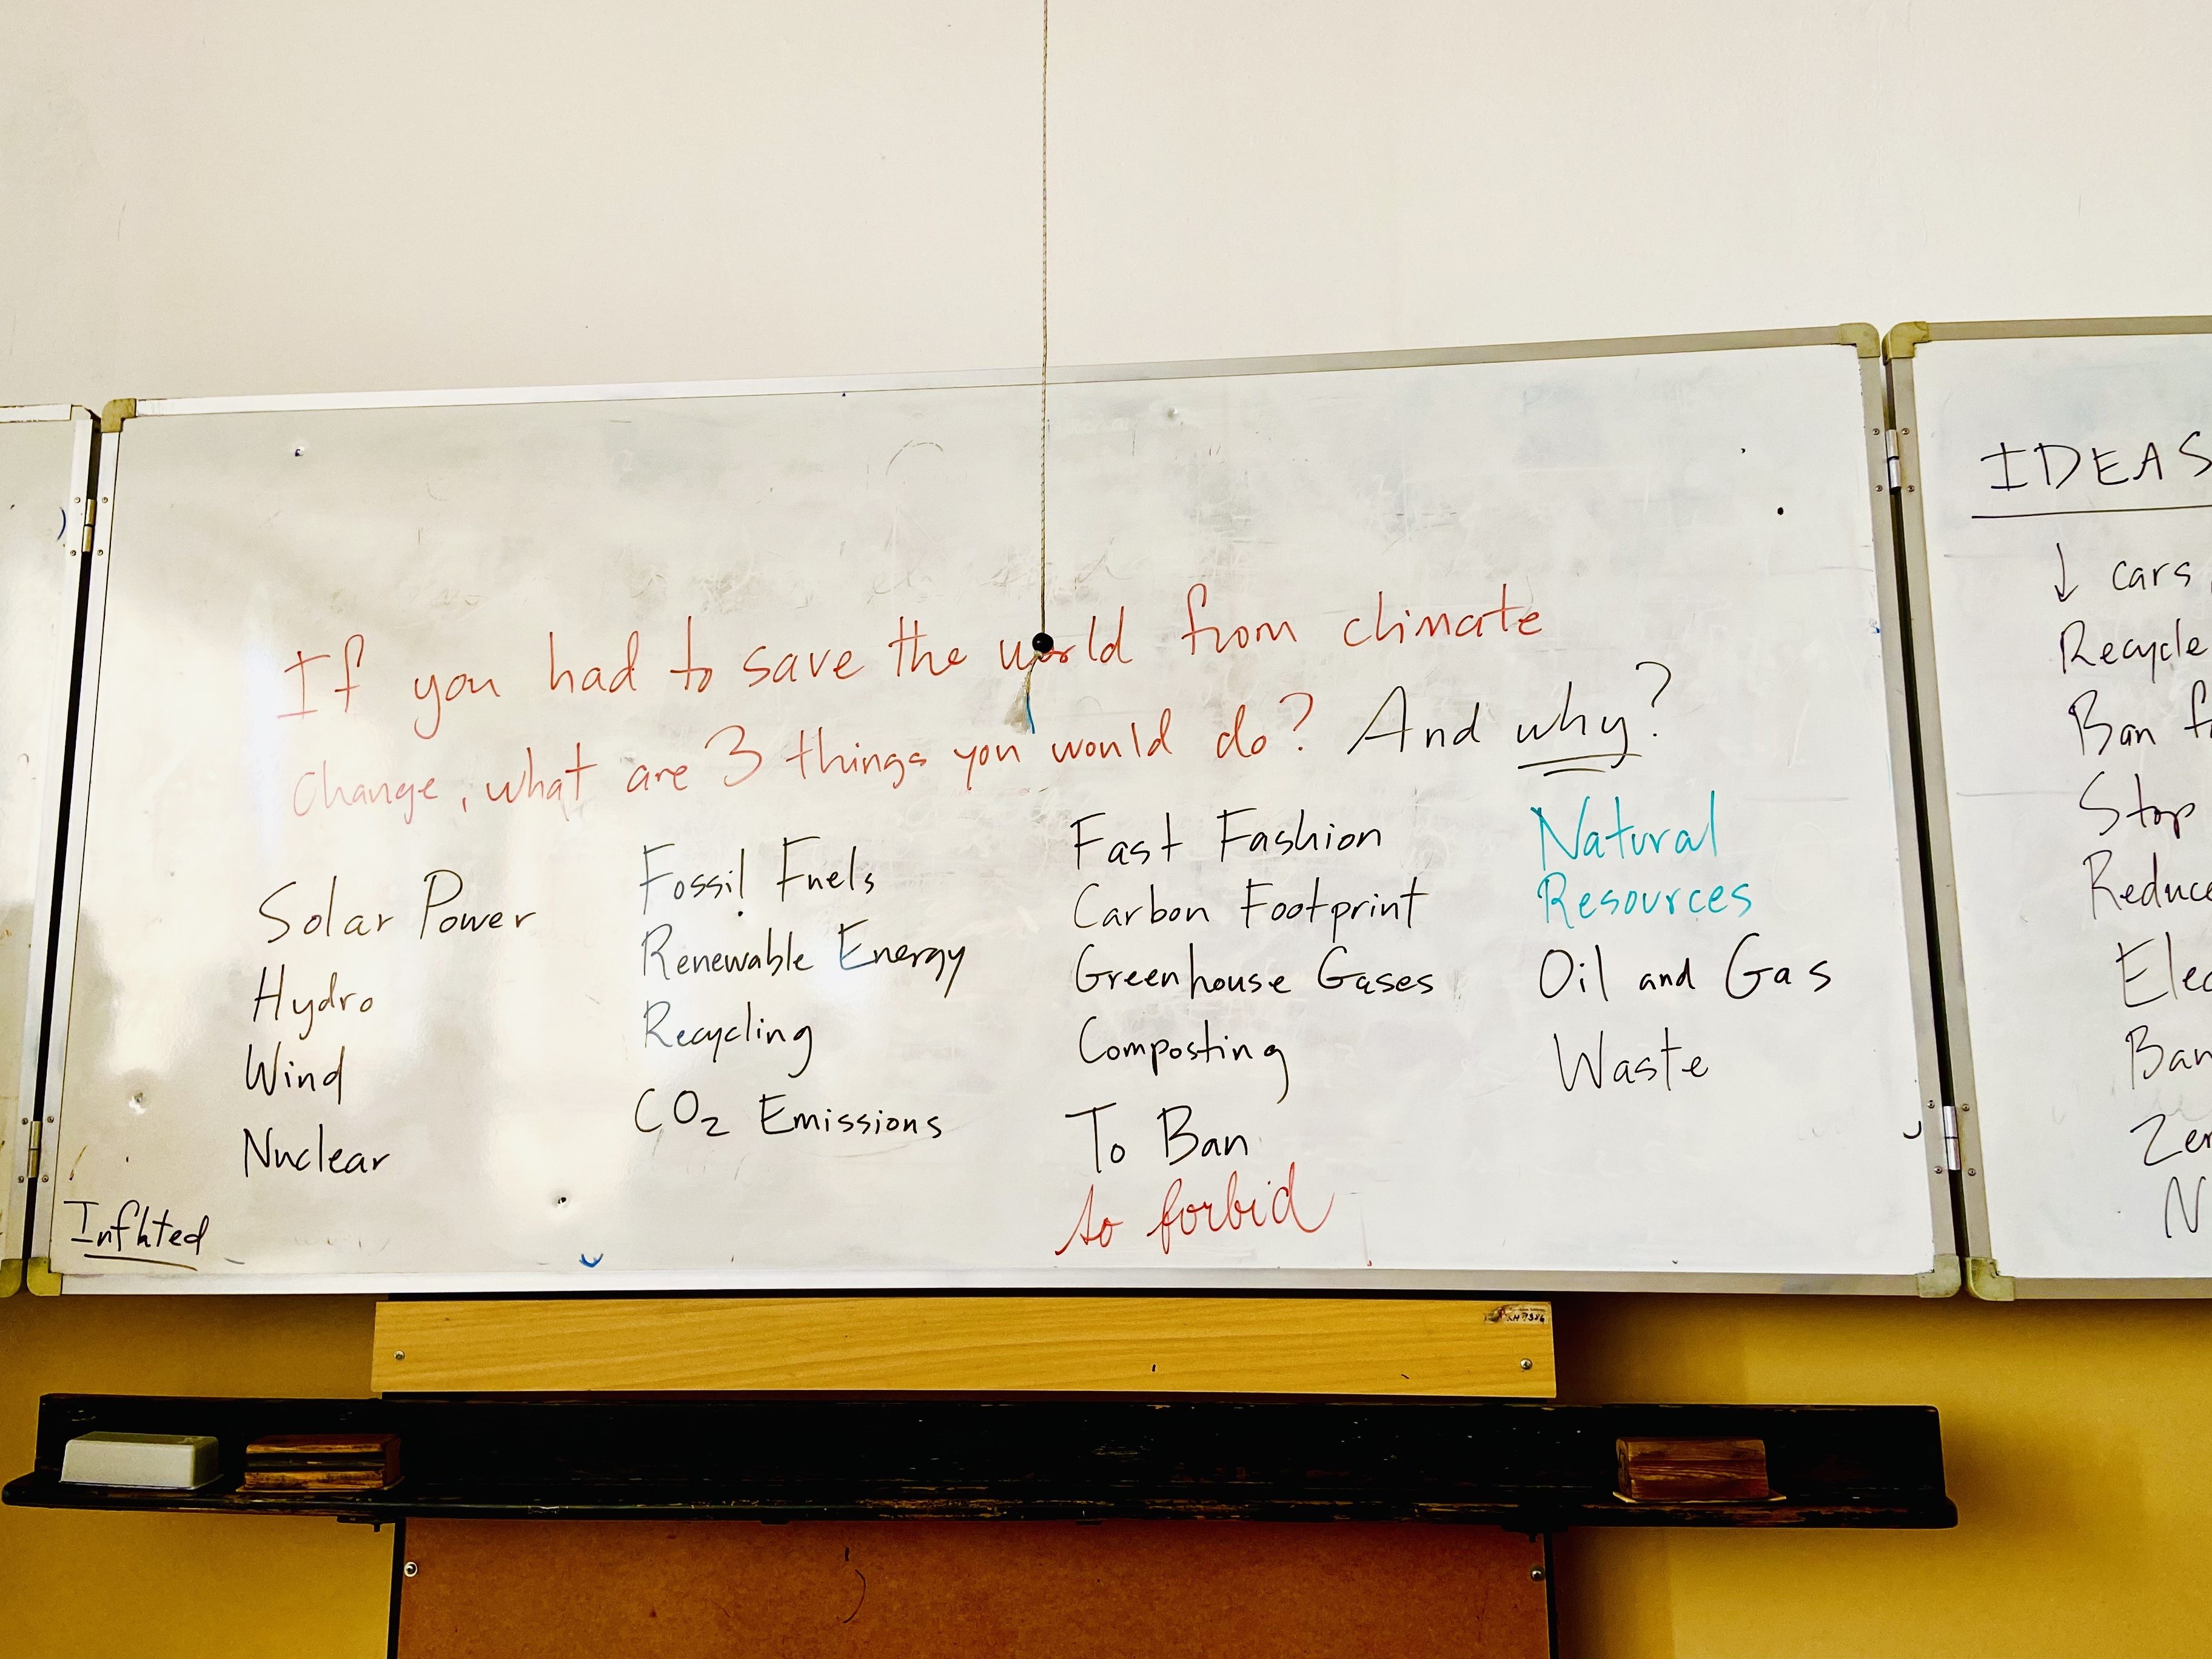 If you had to save the world from climate
change, what are 3 things you would do? And why?
Solar Power
Hydro
Wind
Nuclear
Inflated
Fossil Fuels
Renewable Energy
Recycling
CO₂ Emissions
Fast Fashion
Carbon Footprint
Greenhouse Gases
Composting
To Ban
to forbid
Natural
Resources
Oil and Gas
Waste
IDEAS
↓ cars
Recycle
Ban
Stop
Reduce
Ban